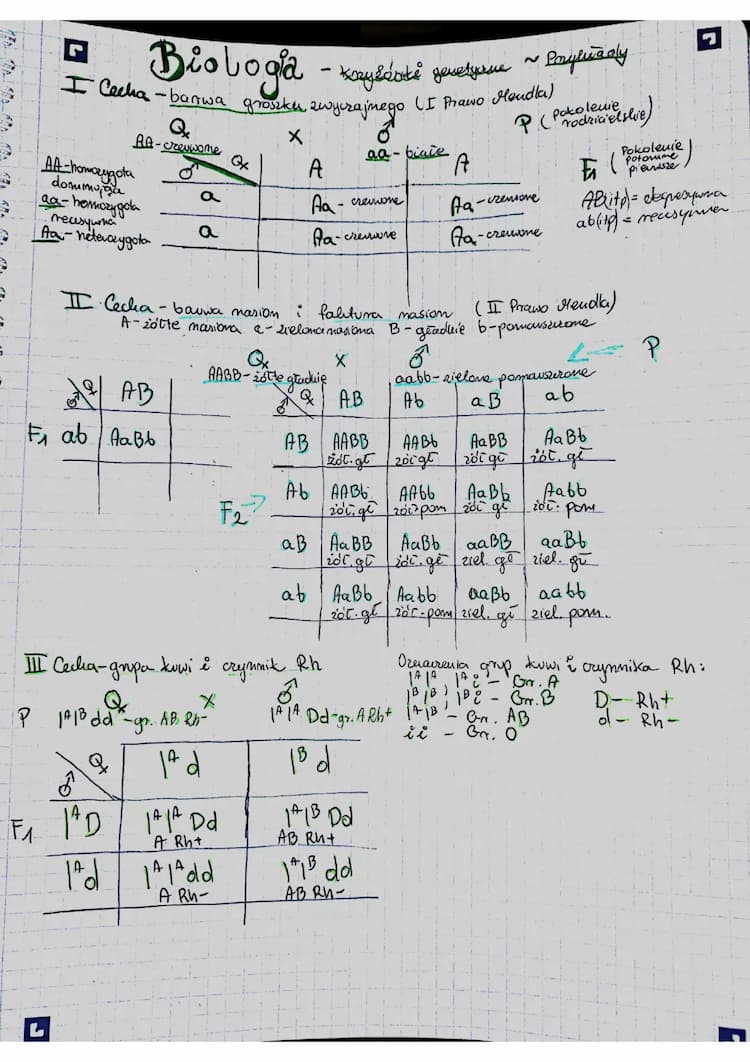 Biologia - krzyżówki genetyczne ~ Przykłady
I Cecha - barwa groszku zwyczajnego (I Prawo Mendla)
P (Pokolenie rodzicielskie)
♀ x ♂
AA - czerwone aa - białe
F1 (Pokolenie potomne pierwsze)
AA - homozygota dominująca
aa - homozygota recesywna
Aa - heterozygota
♂ ♀ A A
a Aa - czerwone Aa - czerwone
a Aa - czerwone Aa - czerwone
AB(itp) = ekspresywna
ab(itp) = recesywna
II Cecha - barwa nasion i faktura nasion (II Prawo Mendla)
A - żółte nasiona a - zielona nasiona B - gładkie b - pomarszczone
♀ x ♂ P
AABB - żółte gładkie aabb - zielone pomarszczone
♂ ♀ AB
F1 ab AaBb
F2
♂ ♀ AB Ab aB ab
AB AABB AABb AaBB AaBb
żół. gł żół gł żół gł żół. gł
Ab AABb AAbb AaBb Aabb
żół. gł żół pom żół gł żół. pom
aB AaBB AaBb aaBB aaBb
żół. gł żół. gł ziel. gł ziel. gł
ab AaBb Aabb aaBb aabb
żół. gł żół. pom ziel. gł ziel. pom.
III Cecha - grupa krwi i czynnik Rh
♀ x ♂
P IAIB dd - gr. AB Rh- IAIA Dd - gr. A Rh+
Oznaczenia grup krwi i czynnika Rh:
IAIA, IAi - Gr. A
IBIB, IBi - Gr. B
IAIB - Gr. AB
ii - Gr. O
D - Rh+
d - Rh-
♂ ♀ IA d IB d
F1 IA D IAIA Dd IAIB Dd
A Rh+ AB Rh+
IA d IAIA dd IAIB dd
A Rh- AB Rh-